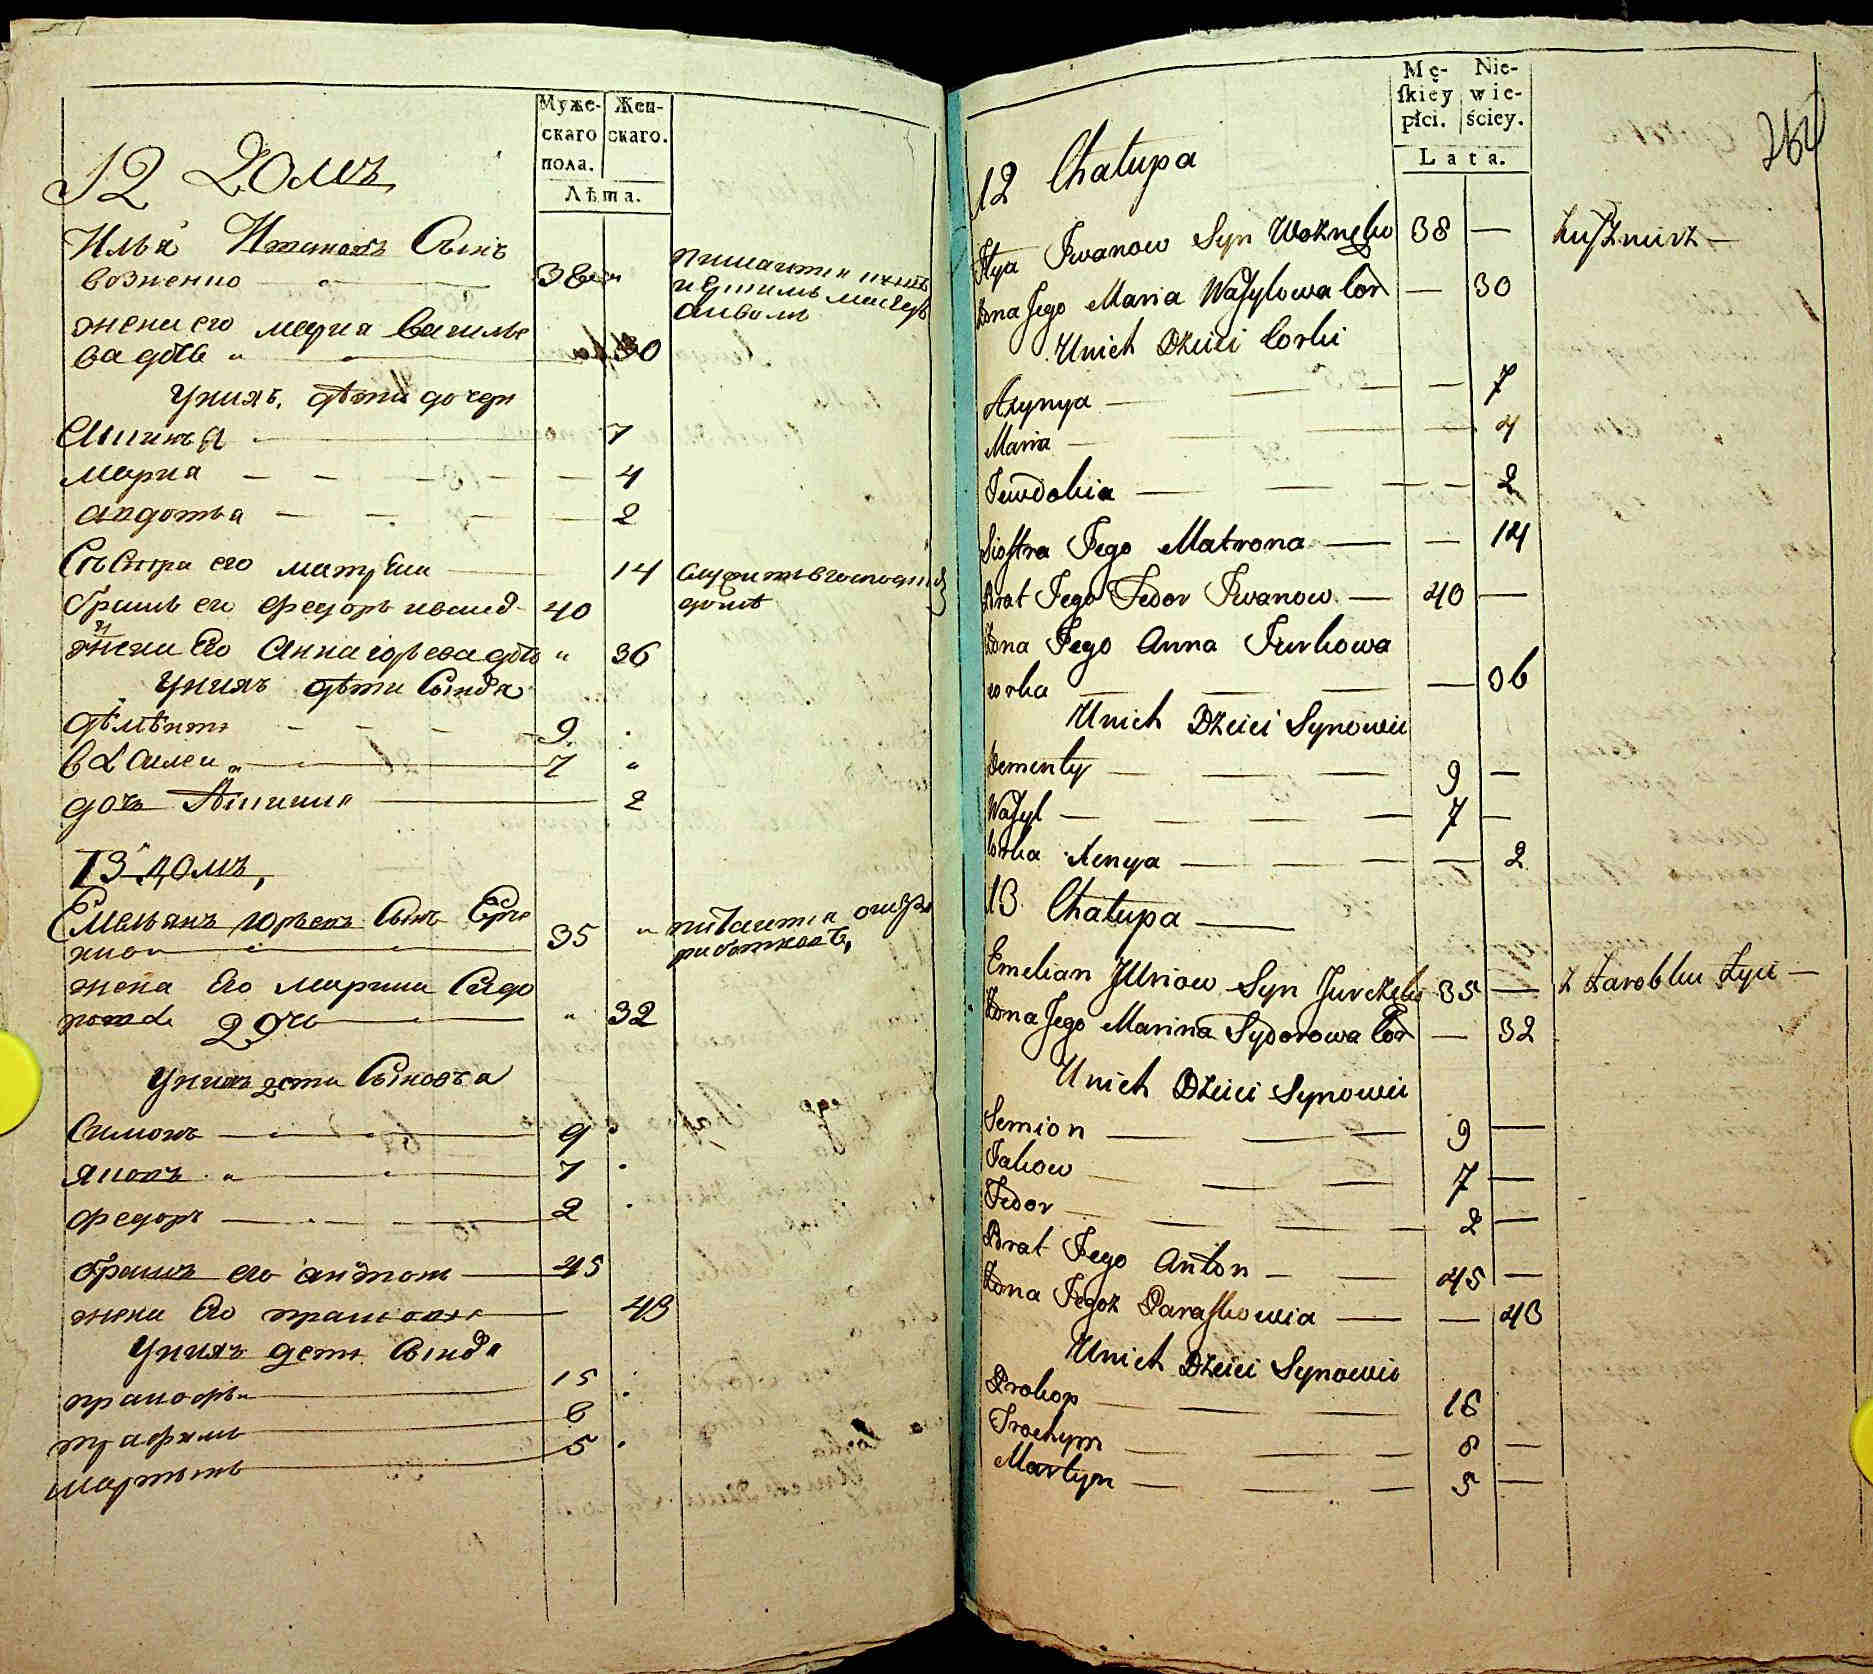 Муже-
скаго
пола.
Жен-
скаго.
Лѣта.
12 Домъ
Илья Ивановъ Сынъ
возненко 38
жена его мария василье
ва дочь 30
Унихъ дѣти дочери
7
мария 4
авдотья 2
Сестра его матрена 14
братъ его федоръ иванов 40
жена Его Анна юрьева дочь 36
Унихъ дѣти Сыновя
дѣментї 9
василеи 7
дочь 2
13 домъ,
Емельянъ юрьевъ Сынъ 35 питается
работкою,
жена Его марина Сидо
рова дочь 32
Унихъ дети Сыновъя
Симонъ 9
яковъ 7
федоръ 2
братъ его антонъ 45
жена Его 43
Унихъ дети Сынов
прокофьи 15
трафимъ 6
мартынъ 5
Mę-
ſkiey
płci.
Nie-
wie-
ściey.
Lata.
12 Chałupa
Ilya Iwanow Syn 38 — Kuſznirz —
Żona Jego Maria Waſylowa Cor — 30
Unich Dzieci Corki
Axynya — — 7
Maria — — 4
Jewdokia — — 2
Sioſtra Jego Matrona — — 14
Brat Jego Fedor Iwanow — 40 —
Żona Jego Anna Jurkowa
corka — — 36
Unich Dzieci Synowie
Dementy — 9 —
Waſyl — 7 —
Corka Xenya — — 2
13 Chałupa —
Emelian Juriow Syn 35 — z Zarobku Żyie —
Żona Jego Marina Sydorowa Cor — 32
Unich Dzieci Synowie
Semion — 9 —
Jakow — 7 —
Fedor — 2 —
Brat Jego Anton — 45 —
Żona Jegoż Paraſkowia — — 43
Unich Dzieci Synowie
Prokop — 16
Trochym — 6 —
Martyn — 5 —